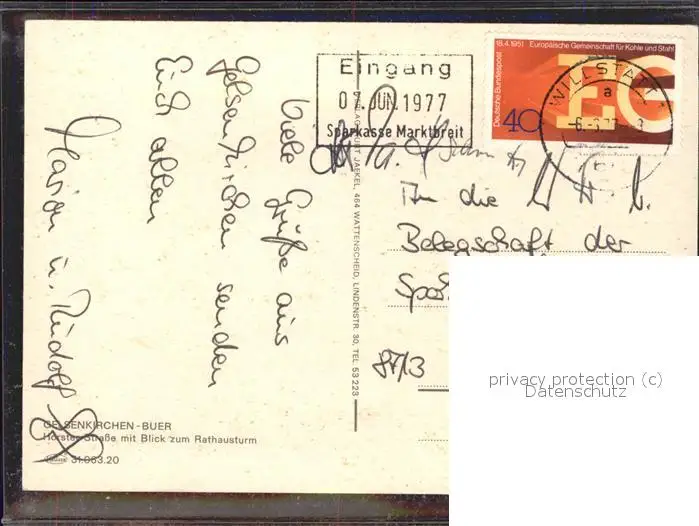 Viele Grüße aus
Gelsenkirchen senden
Euch allen
Marion u. Rudolf
GELSENKIRCHEN-BUER
Horster Straße mit Blick zum Rathausturm
31.063.20
VERLAG KURT JAEKEL, 464 WATTENSCHEID, LINDENSTR. 30, TEL 53 223
Eingang
0 JUN. 1977
Sparkasse Marktbreit
18.4.1951 Europäische Gemeinschaft für Kohle und Stahl
Deutsche Bundespost
EG
40
WILLSTÄTT 1
a
-6.-6.77
An die
Belegschaft der
8713
privacy protection (c)
Datenschutz